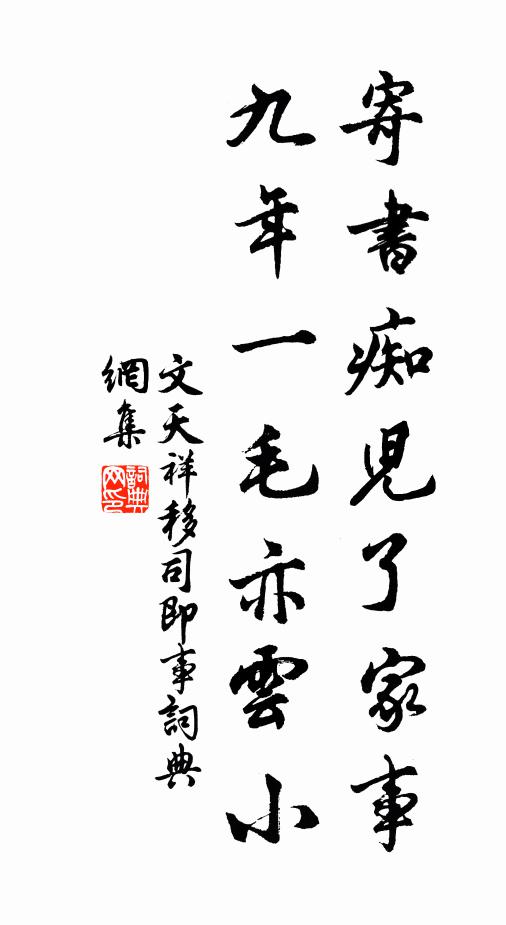 寄書痴児了家事
九年一毛亦雲小
文天祥移司即事詞典
網集
詞典
网印